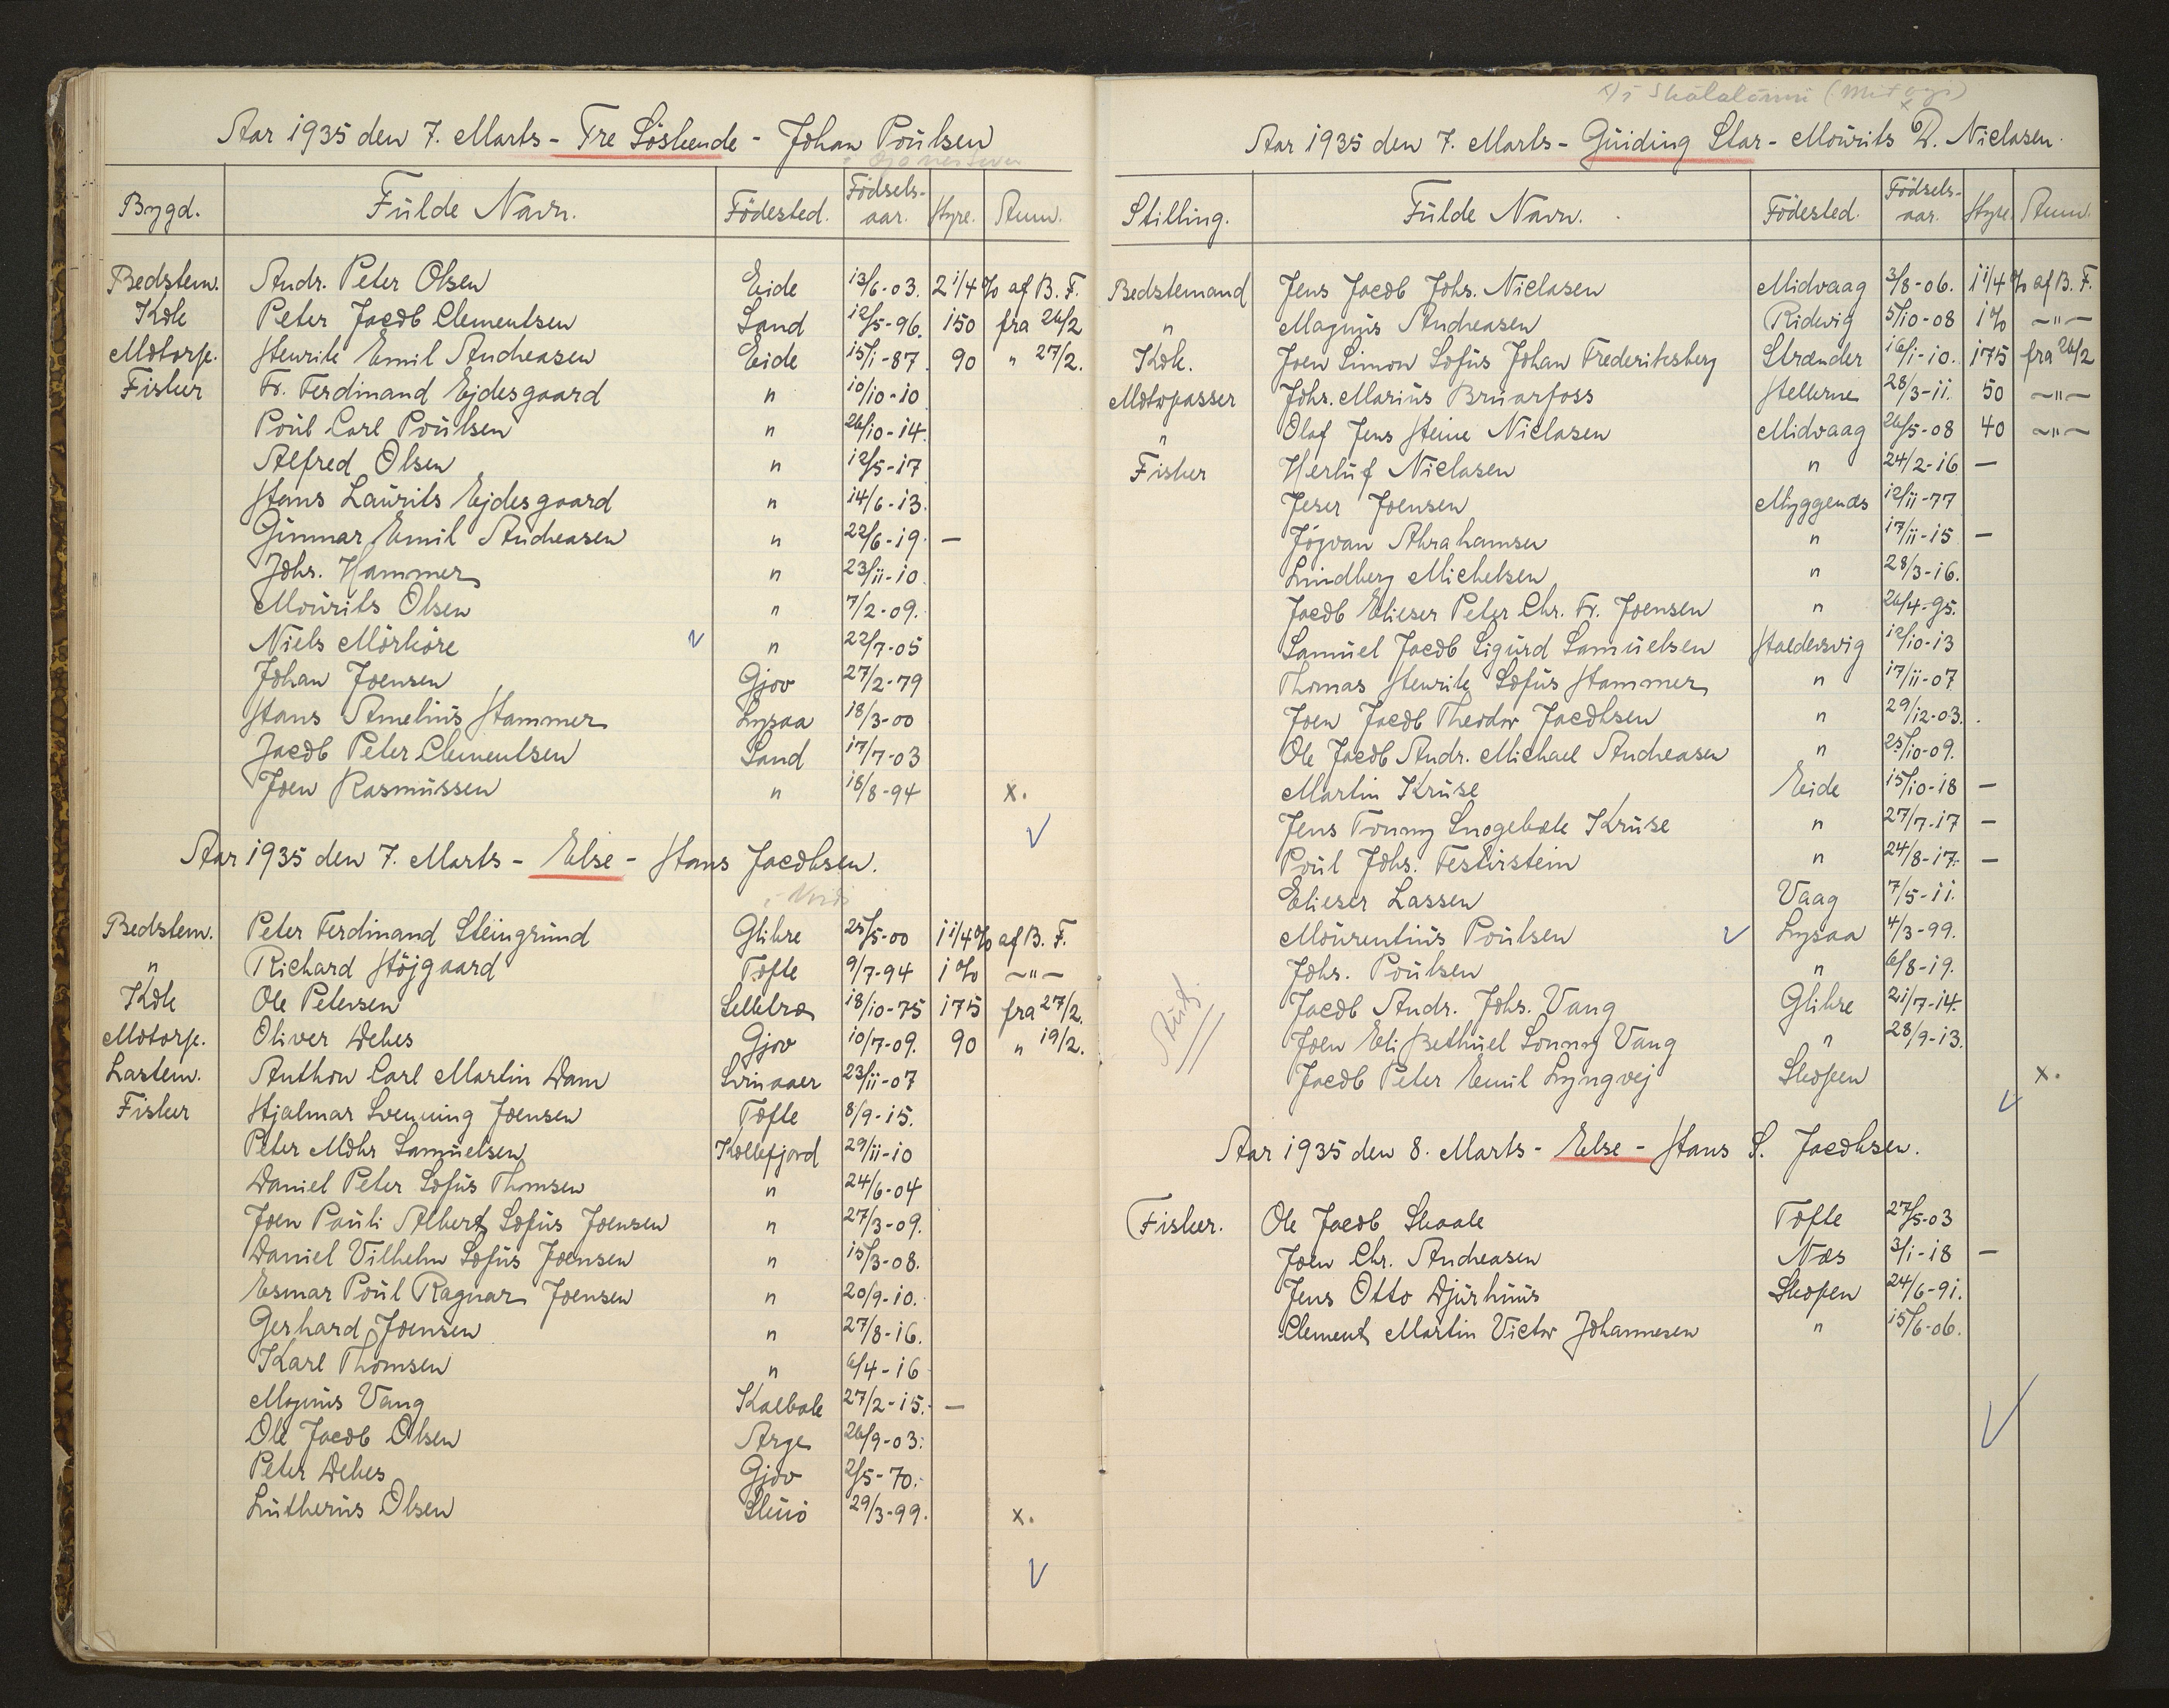 Aar 1935 den 7. Marts - Tre Söskende - Johan Poulsen
Bygd. Fulde Navn. Födested. Födsels-aar. Hyre. Anm.
Bedstem. Andr. Peter Olsen Eide 13/6-03. 2 1/4 % af B. F.
Kok Peter Jacob Clementsen Sand 12/5-96. 150 fra 26/2
Motorp. Henrik Emil Andreasen Eide 15/1-87. 90 " 27/2.
Fisker Fr. Ferdinand Ejdesgaard " 10/10-10
Poul Carl Poulsen " 26/10-14.
Alfred Olsen " 12/5-17
Hans Laurits Ejdesgaard " 14/6-13.
Gunnar Emil Andreasen " 22/6-19. —
Johs. Hammer " 23/11-10.
Mourits Olsen " 7/2-09.
Niels Mörköre " 22/7-05
Johan Joensen Gjov 27/2-79
Hans Amelius Hammer Lysaa 18/3-00
Jacob Peter Clementsen Sand 17/7-03
Joen Rasmussen " 18/8-94 x.
Aar 1935 den 7. Marts - Else - Hans Jacobsen.
Bedstem. Peter Ferdinand Steingrund Glibre 25/5-00 1 1/4 % af B. F.
" Richard Höjgaard Tofte 9/7-94 1 % —"—
Kok Ole Petersen Selletræ 18/10-75 175 fra 27/2.
Motorp. Oliver Dehes Gjov 10/7-09. 90 " 19/2.
Lastem. Anthon Carl Martin Dam Svinaaer 23/11-07
Fisker Hjalmar Svenning Joensen Tofte 8/9-15.
Peter Mohr Samuelsen Kollefjord 29/11-10
Daniel Peter Sofus Thomsen " 24/6-04
Joen Pauli Albert Sofus Joensen " 27/3-09.
Daniel Vilhelm Sofus Joensen " 15/3-08.
Esmar Poul Ragnar Joensen " 20/9-10.
Gerhard Joensen " 27/8-16.
Karl Thomsen " 6/4-16
Magnus Vang Kalbak 27/2-15. —
Ole Jacob Olsen Arge 26/9-03.
Peter Dehes Gjov 2/5-70.
Lutherus Olsen 29/3-99. x.
x) i Skálatoruni
Aar 1935 den 7. Marts - Guiding Star - Mourits D. Niclasen.
Stilling. Fulde Navn. Födested. Födsels-aar. Hyre. Anm.
Bedstemand Jens Jacob Johs. Niclasen Midvaag 3/8-06. 1 1/4 % af B. F.
" Magnus Andreasen Ridevig 5/10-08 1 % —"—
Kok. Joen Simon Sofus Johan Frederiksberg Strænder 16/1-10. 175 fra 26/2
Motorpasser Johs. Marius Bruarfoss Hellerne 28/3-11. 50 —"—
" Olaf Jens Heine Niclasen Midvaag 26/5-08 40 —"—
Fisker Herluf Niclasen " 24/2-16 —
Jeser Joensen Myggenæs 12/11-77
Jógvan Abrahamsen " 17/11-15 —
Lindberg Michelsen " 28/3-16.
Jacob Elieser Peter Chr. Fr. Joensen " 26/4-95.
Samuel Jacob Sigurd Samuelsen Haldersvig 12/10-13
Thomas Henrik Sofus Hammer " 17/11-07
Joen Jacob Theodor Jacobsen " 29/12-03.
Ole Jacob Andr. Michael Andreasen " 25/10-09.
Martin Kruse Eide 15/10-18 —
Jens Tonny Snogebæk Kruse " 27/7-17 —
Poul Johs. Festirstein " 24/8-17. —
Elieser Lassen Vaag 7/5-11.
Mourentius Poulsen Lysaa 4/3-99.
Johs. Poulsen " 6/8-19.
Jacob Andr. Johs. Vang Glibre 21/7-14.
Joen Eli Bethuel Sonny Vang " 28/9-13.
Jacob Peter Emil Lyngvej Skopen x.
Aar 1935 den 8. Marts - Else - Hans S. Jacobsen.
Fisker. Ole Jacob Skaale Tofte 27/5-03
Joen Chr. Andreasen Næs 3/1-18 —
Jens Otto Djurhuus Skopen 24/6-91.
Clement Martin Victor Johannesen " 15/6-06.